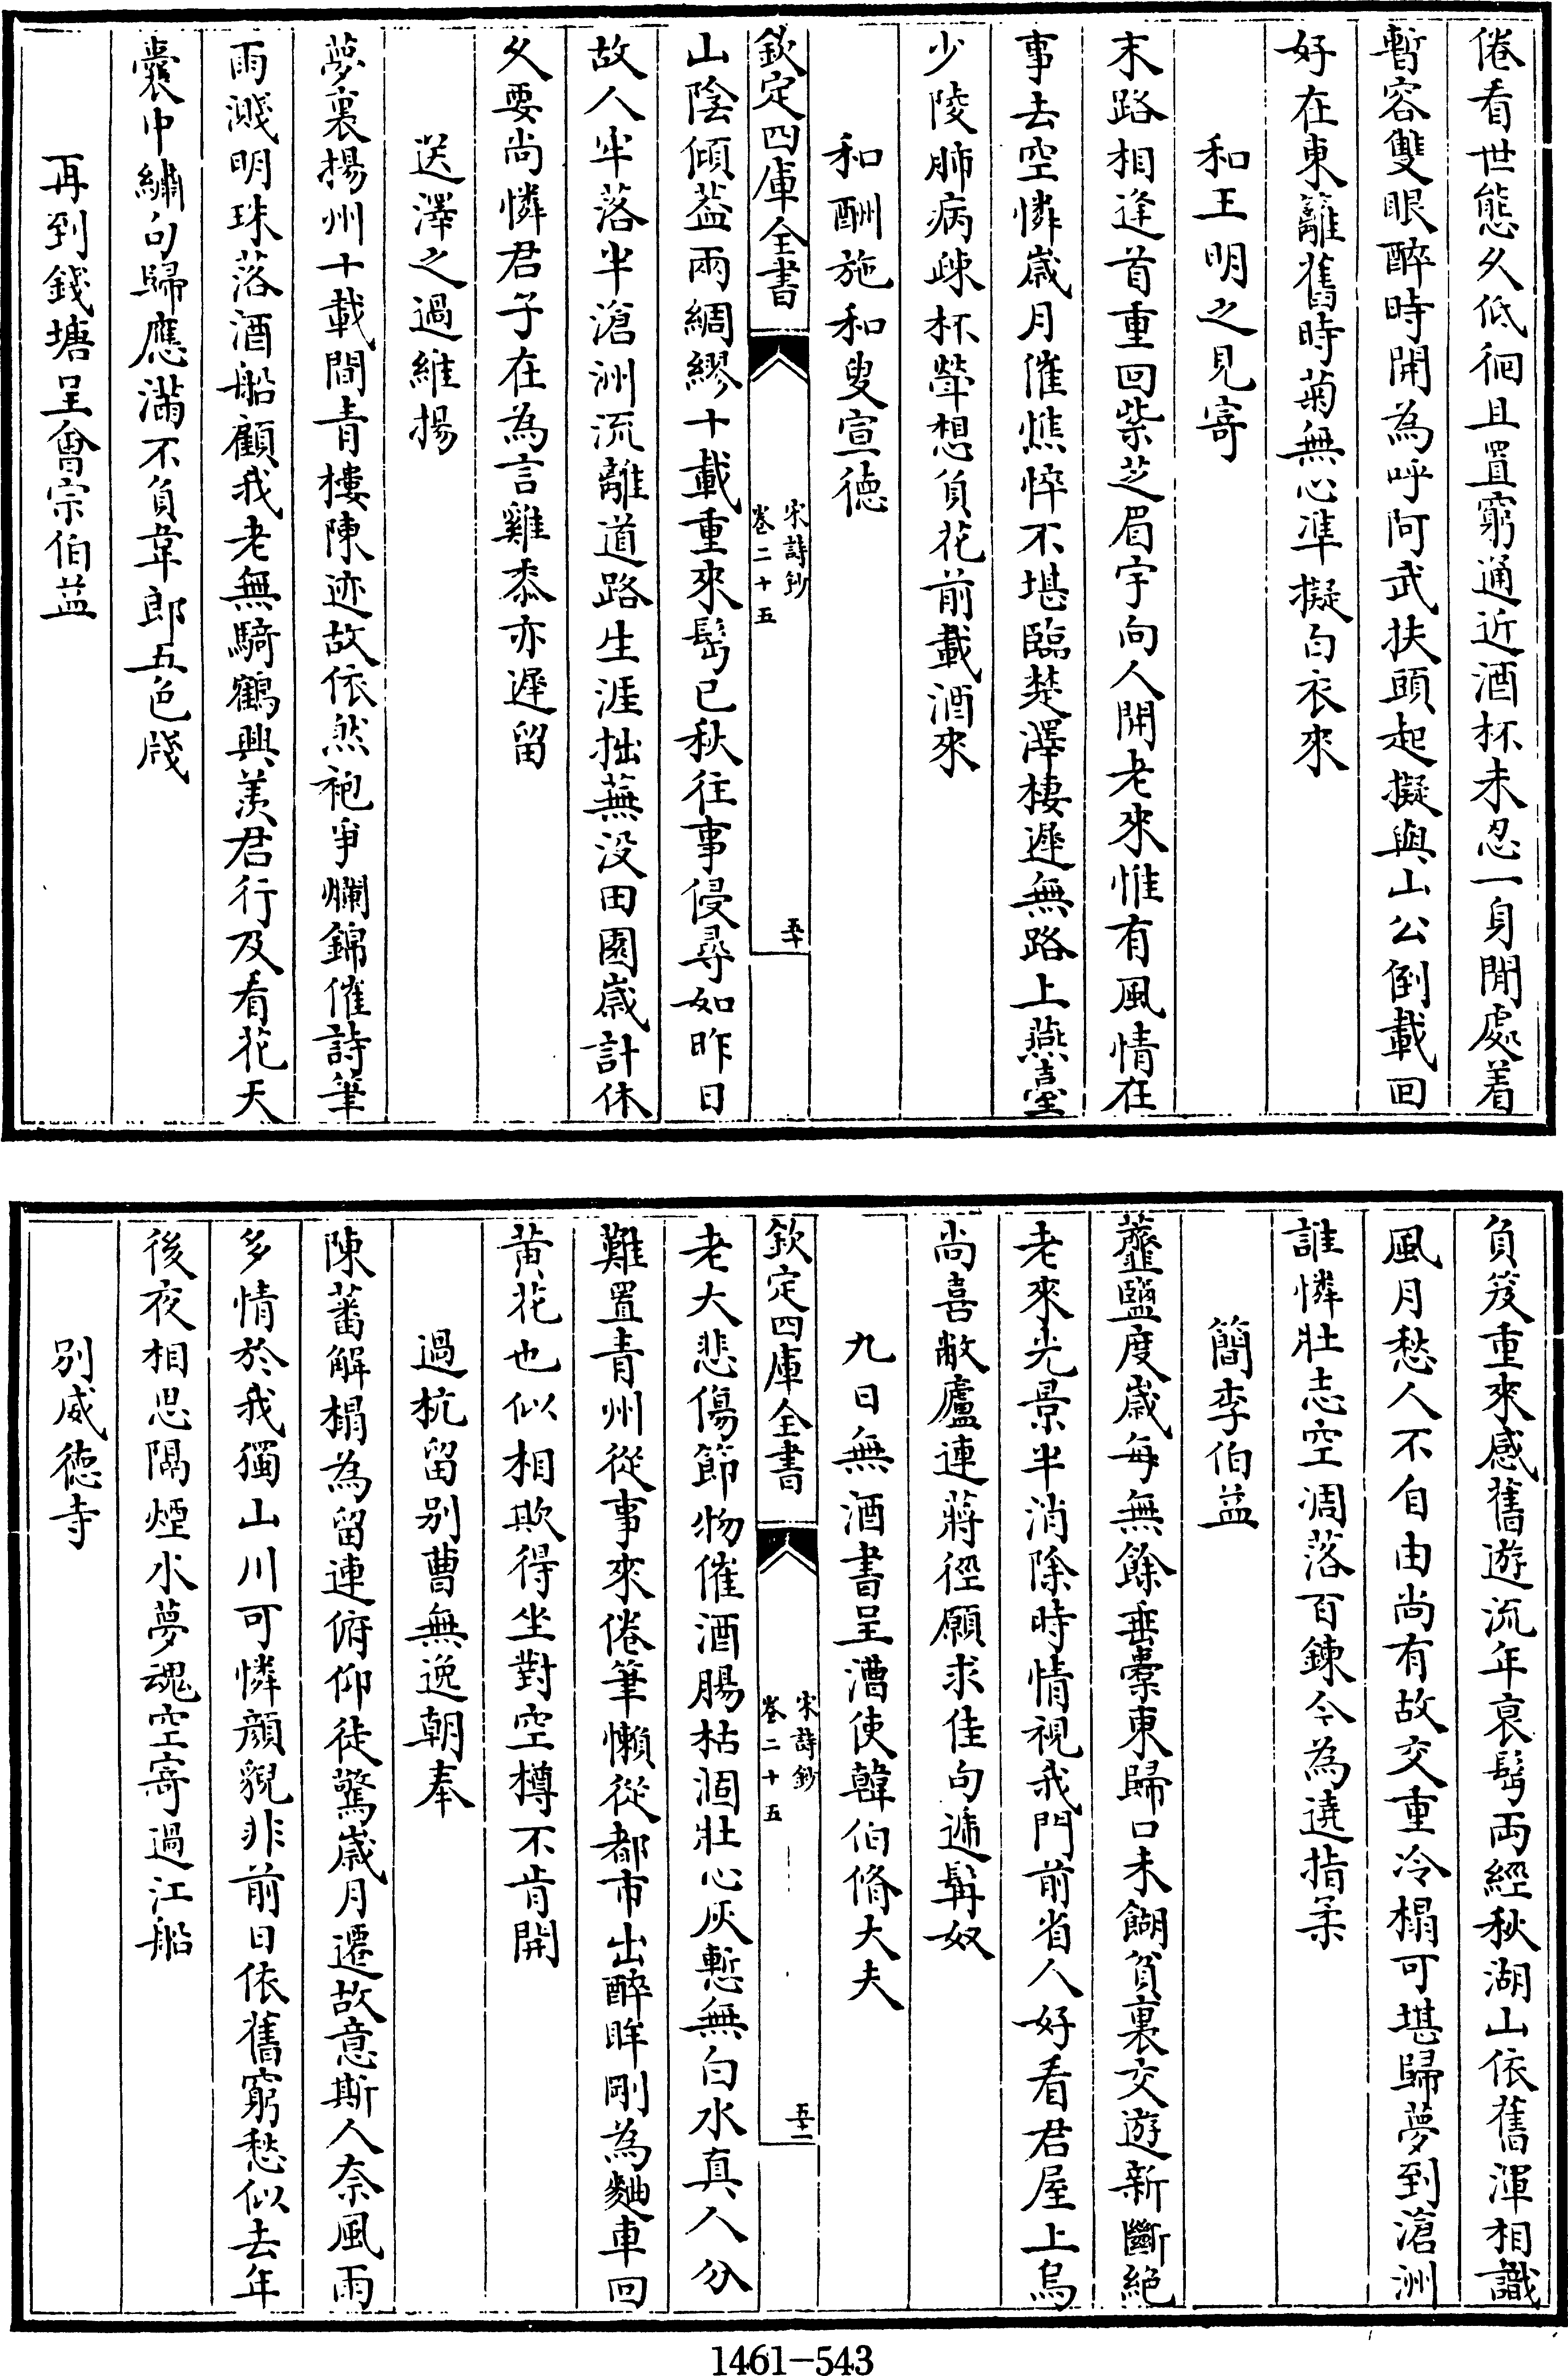 倦看世態久低徊且置窮通近酒杯未忍一身閒處着
暫容雙眼醉時開為呼阿武扶頭起擬與山公倒載回
好在東籬舊時菊無心準擬白衣來
和王明之見寄
末路相逢首重回紫芝眉宇向人開老來惟有風情在
事去空憐歳月催憔悴不堪臨楚澤棲遲無路上燕臺
少陵肺病疎杯斝想負花前載酒來
和酬施和叟宣徳
欽定四庫全書
宋詩鈔
卷二十五
五十
山陰傾葢兩綢繆十載重來髩已秋往事侵尋如昨日
故人牢落半滄洲流離道路生涯拙蕪没田園歳計休
久要尚憐君子在為言雞黍亦遲留
送澤之過維揚
夢裏揚州十載間青樓陳迹故依然袍爭爛錦催詩筆
雨濺明珠落酒船顧我老無騎鶴興羡君行及看花天
囊中繡句歸應滿不負韋郎五色牋
再到錢塘呈曾宗伯益
負笈重來感舊遊流年哀髩两經秋湖山依舊渾相識
風月愁人不自由尚有故交重冷榻可堪歸夢到滄洲
誰憐壯志空凋落百鍊今為遶指柔
簡李伯益
虀鹽度歳每無餘垂槖東歸口未餬貧裏交遊新斷絶
老來光景半消除時情視我門前省人好看君屋上烏
尚喜敝廬連蔣徑願求佳句遞髯奴
九日無酒書呈漕使韓伯脩大夫
欽定四庫全書
宋詩鈔
卷二十五
五十一
老大悲傷節物催酒腸枯涸壯心灰慙無白水真人分
難置青州從事來倦筆懶從都市出醉眸剛為麯車回
黄花也似相欺得坐對空樽不肯開
過杭留别曹無逸朝奉
陳蕃解榻為留連俯仰徒驚歳月遷故意斯人奈風雨
多情於我獨山川可憐顔貌非前日依舊窮愁似去年
後夜相思隔煙水夢魂空寄過江船
别威徳寺
1461-543